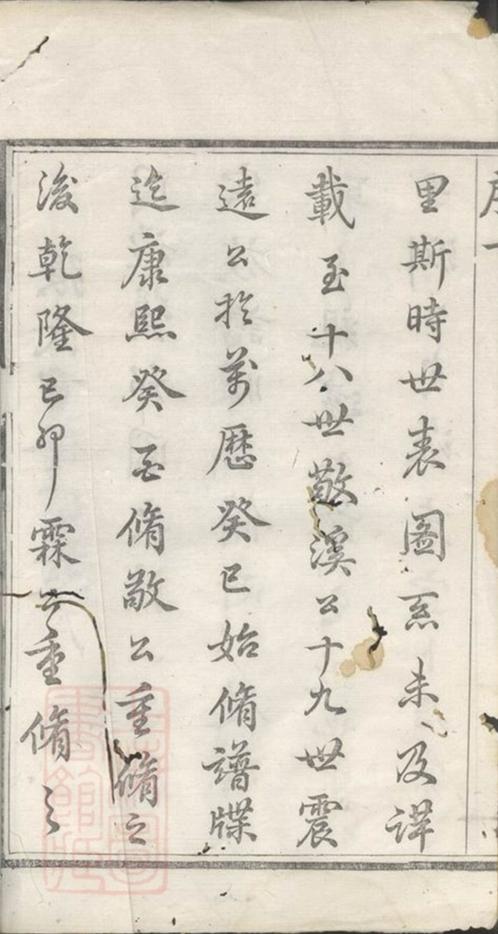 序一
里斯時世表圖系未及詳
載至十八世敬溪公十九世震
遠公於萬歷癸巳始脩譜牒
迄康熙癸酉脩敬公重脩之
後乾隆己卯霖公重脩之